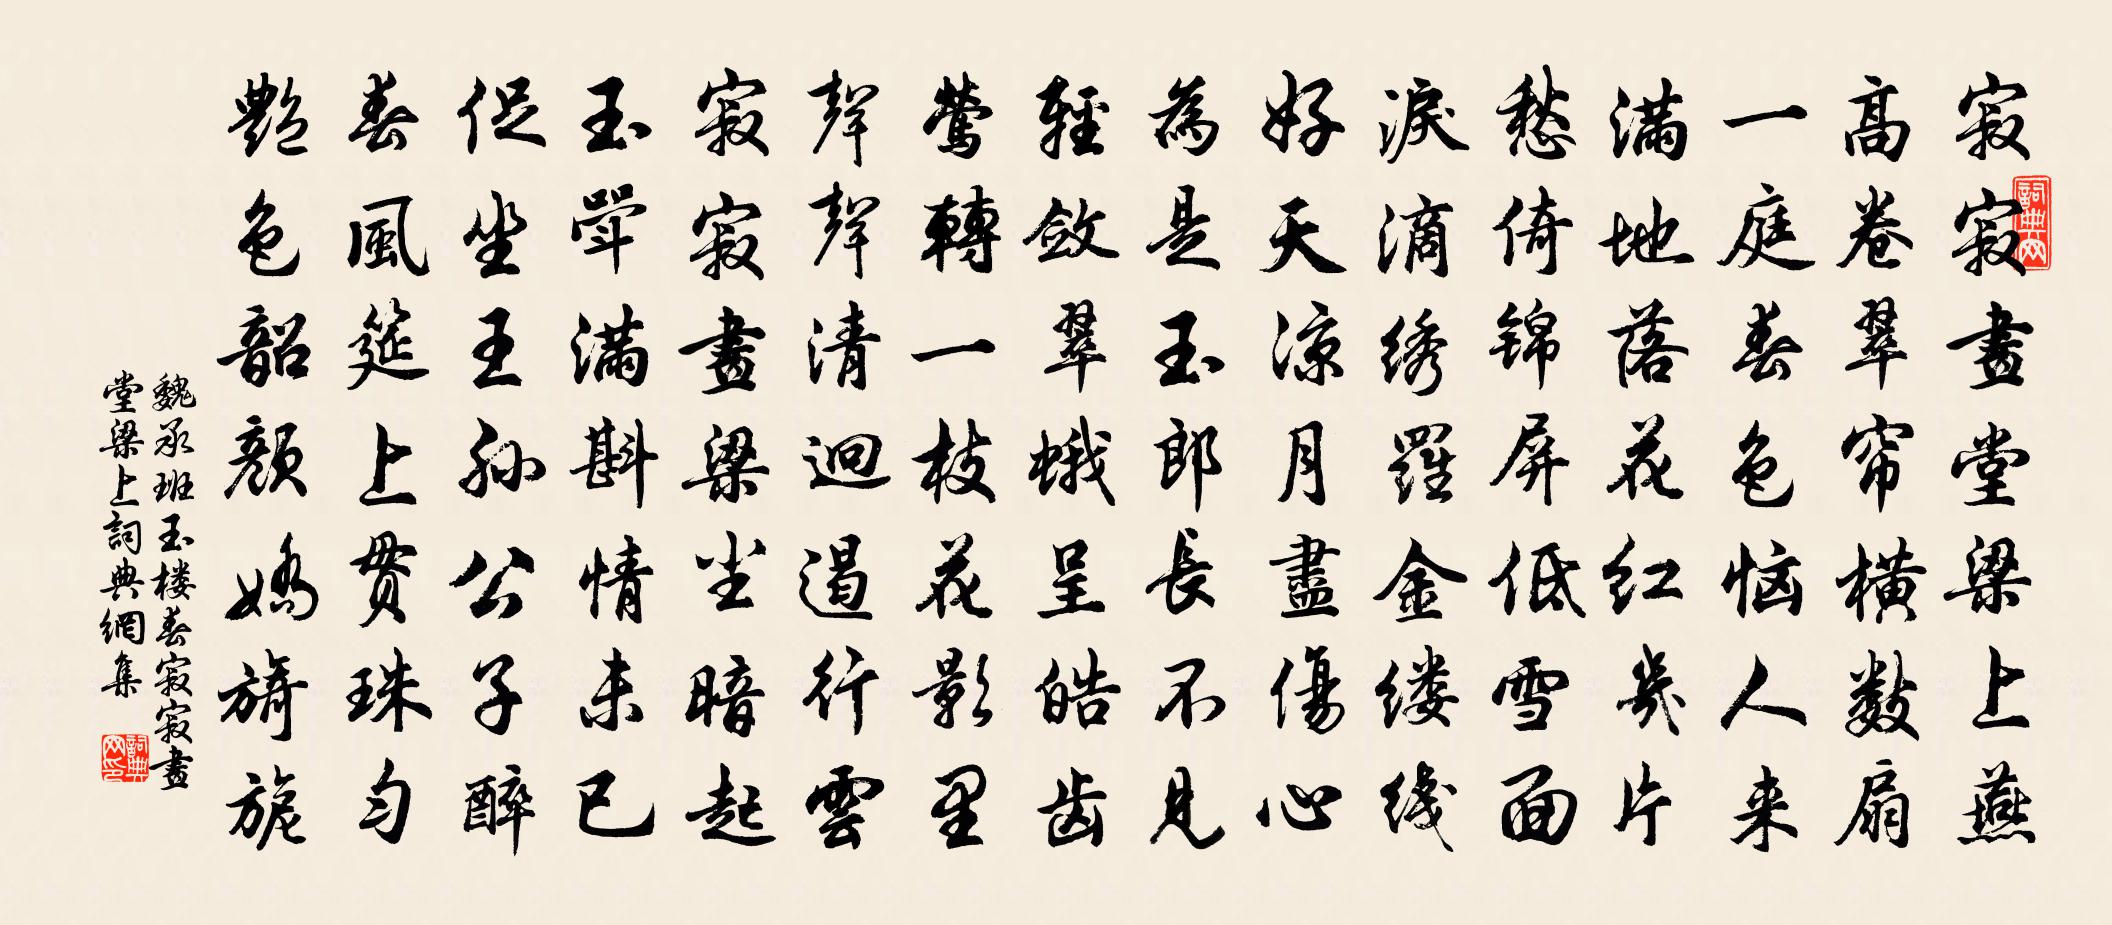 寂寂畫堂梁上燕
高卷翠帘橫數扇
一庭春色恼人来
满地落花红幾片
愁倚锦屏低雪面
淚滴绣羅金缕线
好天涼月盡傷心
為是玉郎長不見
輕斂翠蛾呈皓齿
鶯轉一枝花影里
聲聲清迥遏行雲
寂寂畫梁尘暗起
玉斝满斟情未已
促坐王孙公子醉
春風筵上贯珠匀
艷色韶颜嬌旖旎
魏承班玉楼春寂寂畫
堂梁上詞典網集
詞典网
詞典网印